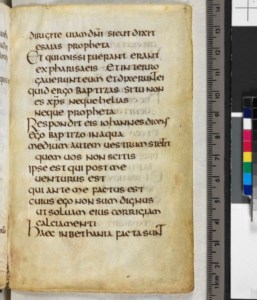 dirigite uiam dni sicut dixit
esaias propheta
Et qui missi fuerant erant
ex pharisaeis et interro
gauerunt eum et dixerunt ei
quid ergo baptizas si tu non
es xps neque helias
neque propheta
Respondit eis iohannes dicens
ego baptizo in aqua
medium autem uestrum stetit
quem uos non scitis
ipse est qui post me
uenturus est
qui ante me factus est
cuius ego non sum dignus
ut soluam eius corrigiam
calciamenti
Haec in bethania facta sunt